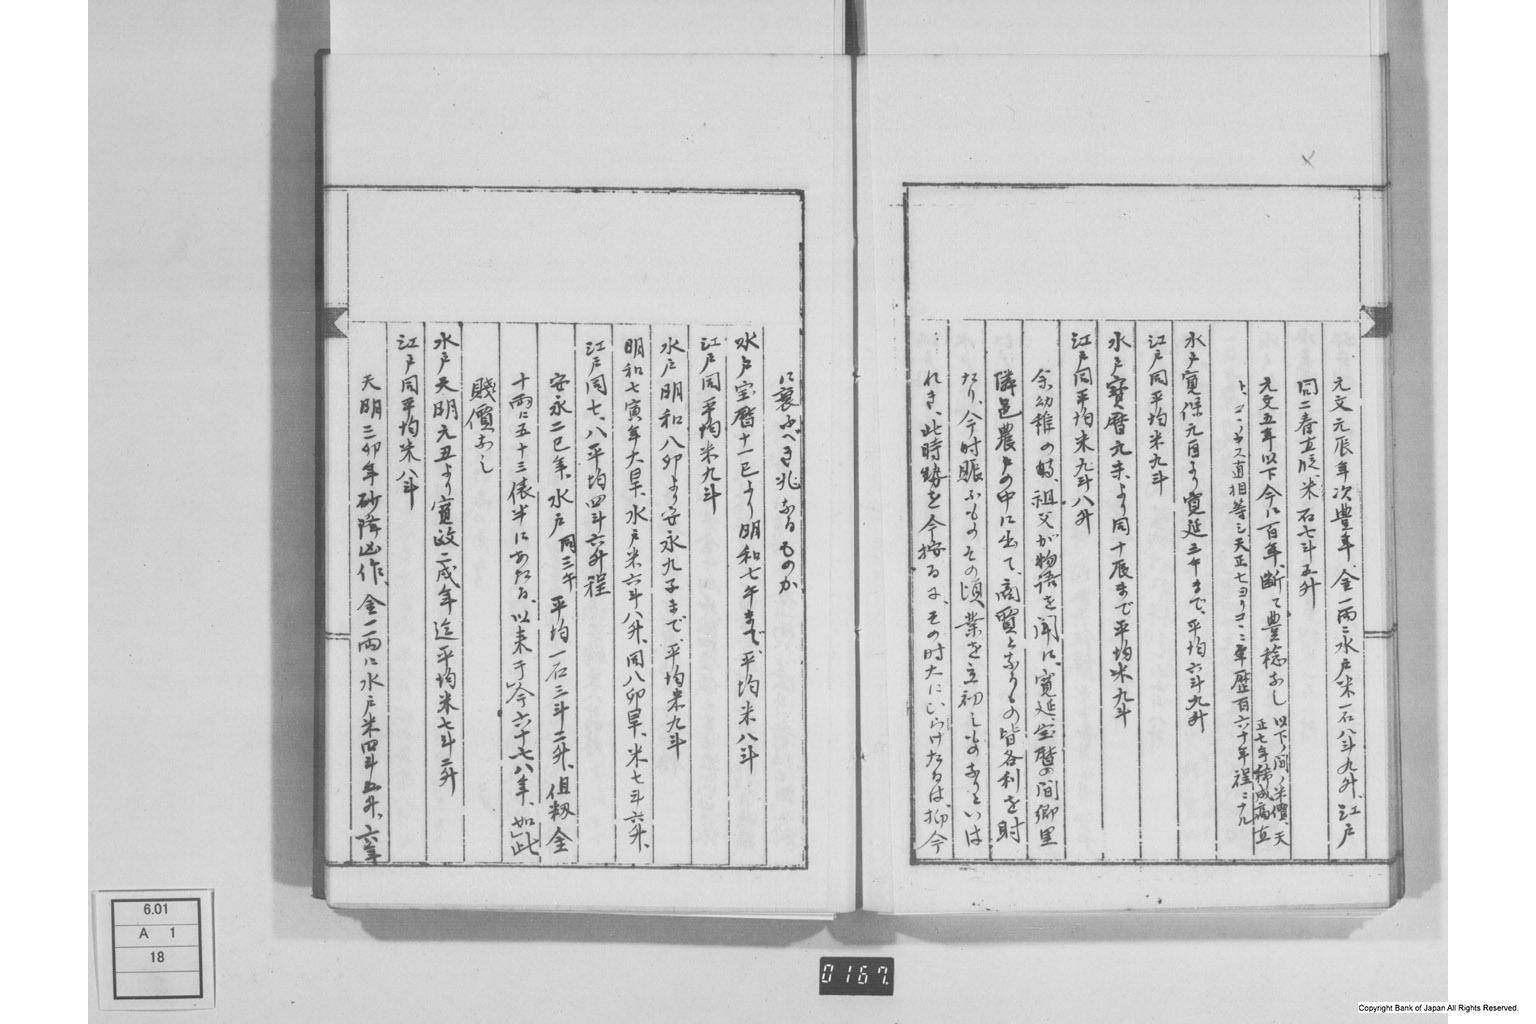 元文元辰年次豊年、金一両ニ水戸米一石八斗九升、江戸
同二春直段、米一石七斗五升
元文五年以下今に百年、断て豊稔なし 以下ノ間ノ米價、天正七年稀成高直
ト、ゴンゴウス直相等シ、天正七ヨリコヽニ畢歴百六十年程ニナル
水戸寛保元酉より寛延三午まで、平均六斗九升
江戸同平均米九斗
水戸寳暦元未より同十辰まで平均米九斗
江戸同平均米九斗八升
余幼稚の時、祖父が物語を聞に、寛延、宝暦の間郷里
隣邑農戸の中に出て、商賈となりもの皆各利を射
たり、今時賑ふものその頃業を立初しものなりといは
れき、此時勢を今按るに、その時大にひらけたるは、抑今
に衰ふべき兆なるものか
水戸宝暦十一巳より明和七午まで、平均米八斗
江戸同平均米九斗
水戸明和八卯より安永九子まで、平均米九斗
明和七寅年大旱、水戸米六斗八升、同八卯旱、米七斗六升、
江戸同七、八平均四斗六升程
安永二巳年、水戸 同三午 平均一石三斗二升、但籾金
十両に五十三俵半にあたる、以来于今六十七八年、如此
賤價なし
水戸天明元丑より寛政二戌年迄平均米七斗二升
江戸同平均米八斗
天明三卯年砂降凶作、金一両に水戸米四斗五升、六年
6.01
A 1
18
0167.
Copyright Bank of Japan All Rights Reserved.